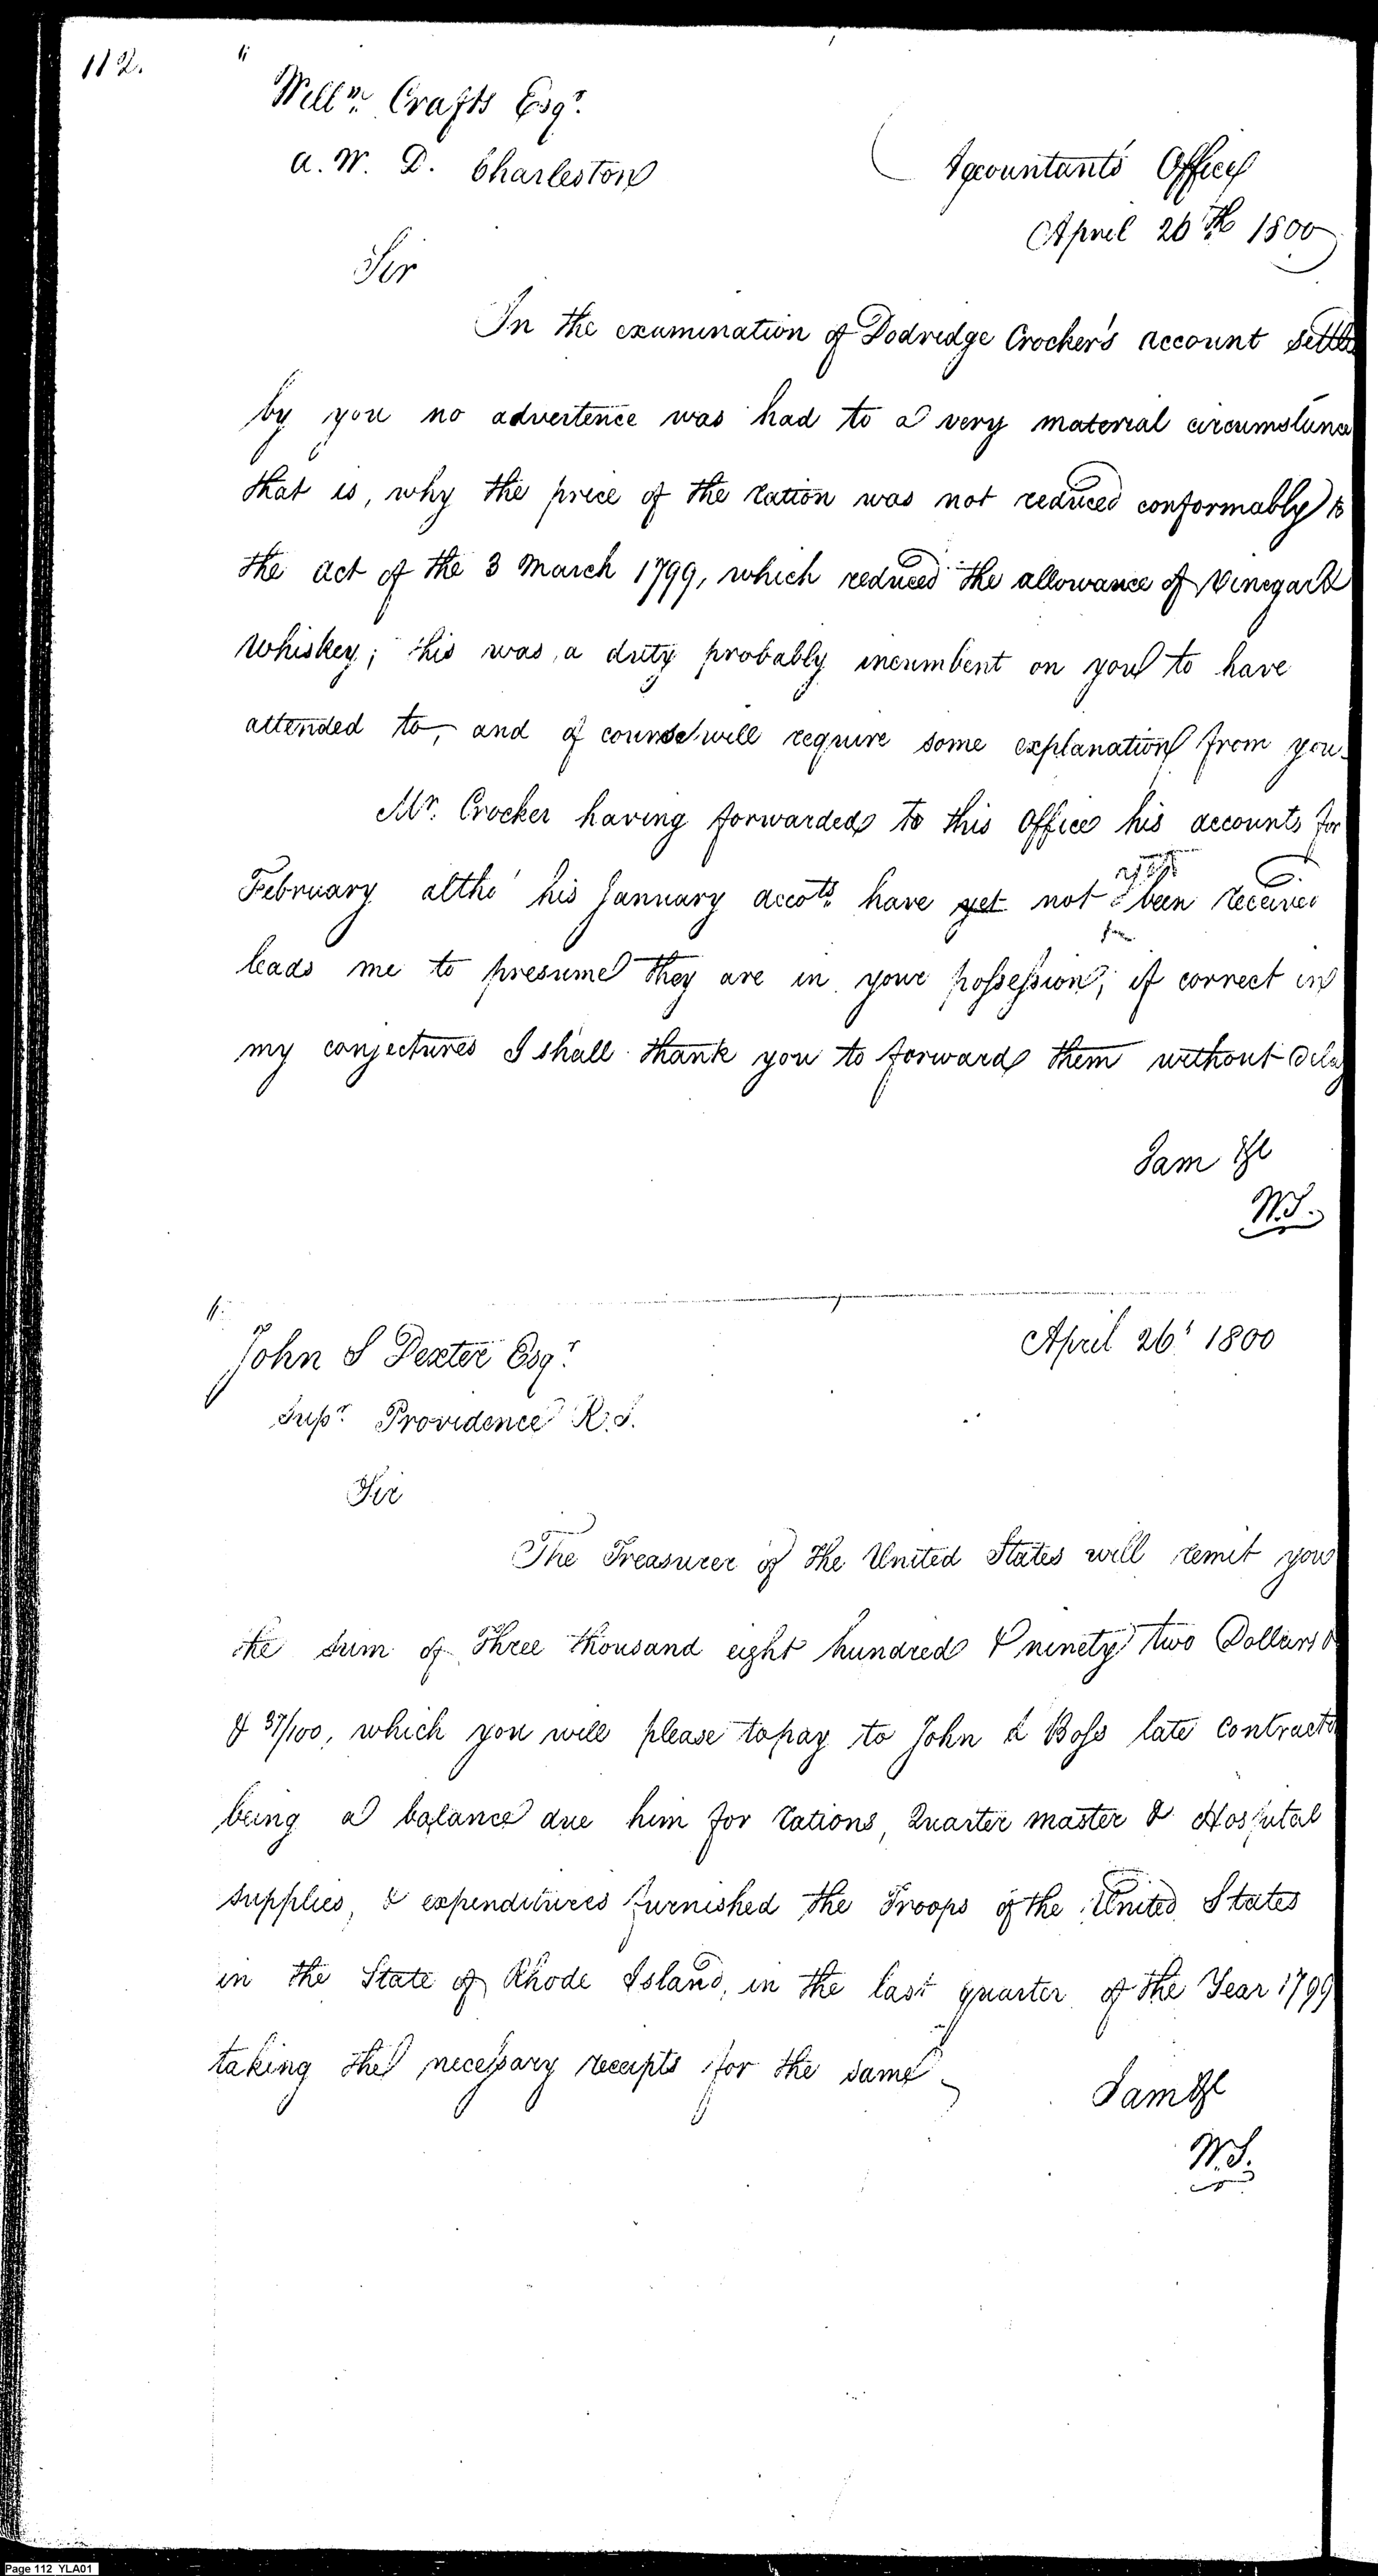 112.
Willm. Crafts Esqr.
a. W. D. Charleston
Accountants Office
April 26th 1800
Sir
In the examination of Dodredge Crocker's account settle
by you no advertence was had to a very material circumstance
that is, why the price of the ration was not reduced conformably to
the act of the 3 March 1799, which reduced the allowance of Vinegar &
Whiskey; this was a duty probably incumbent on you to have
attended to, and of course will require some explanation from you.
Mr. Crocker having forwarded to this Office his accounts for
February altho' his January accots. have yet not yet been received
leads me to presume they are in your possession; if correct in
my conjectures I shall thank you to forward them without delay
I am &c
W.S.
April 26' 1800
John S Dexter Esqr.
Supr. Providence R.I.
Sir
The Treasurer of the United States will remit you
the sum of Three thousand eight hundred & ninety two Dollars
& 37/100, which you will please to pay to John L Boss late Contractor
being a balance due him for rations, Quarter master & Hospital
supplies, & expenditures furnished the Troops of the United States
in the State of Rhode Island, in the last quarter of the Year 1799
taking the necessary receipts for the same
I am &c
W.S.
Page 112 YLA01